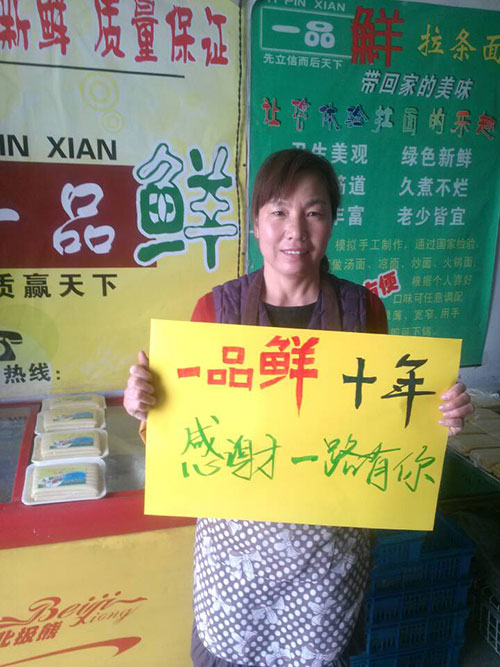 新鲜 质量保证
PIN XIAN
一品鲜
质赢天下
热线:
YI PIN XIAN
一品鲜 拉条面
先立信而后天下
带回家的美味
让您体验拉面的乐趣
卫生美观 绿色新鲜
筋道 久煮不烂
丰富 老少皆宜
模拟手工制作,通过国家检验,
做汤面、凉面、炒面、火锅面,
方便
根据个人喜好
口味可任意调配
薄、宽窄,用手
即可下锅。
一品鲜 十年
感谢一路有你
Beiji
Xiong
北极熊